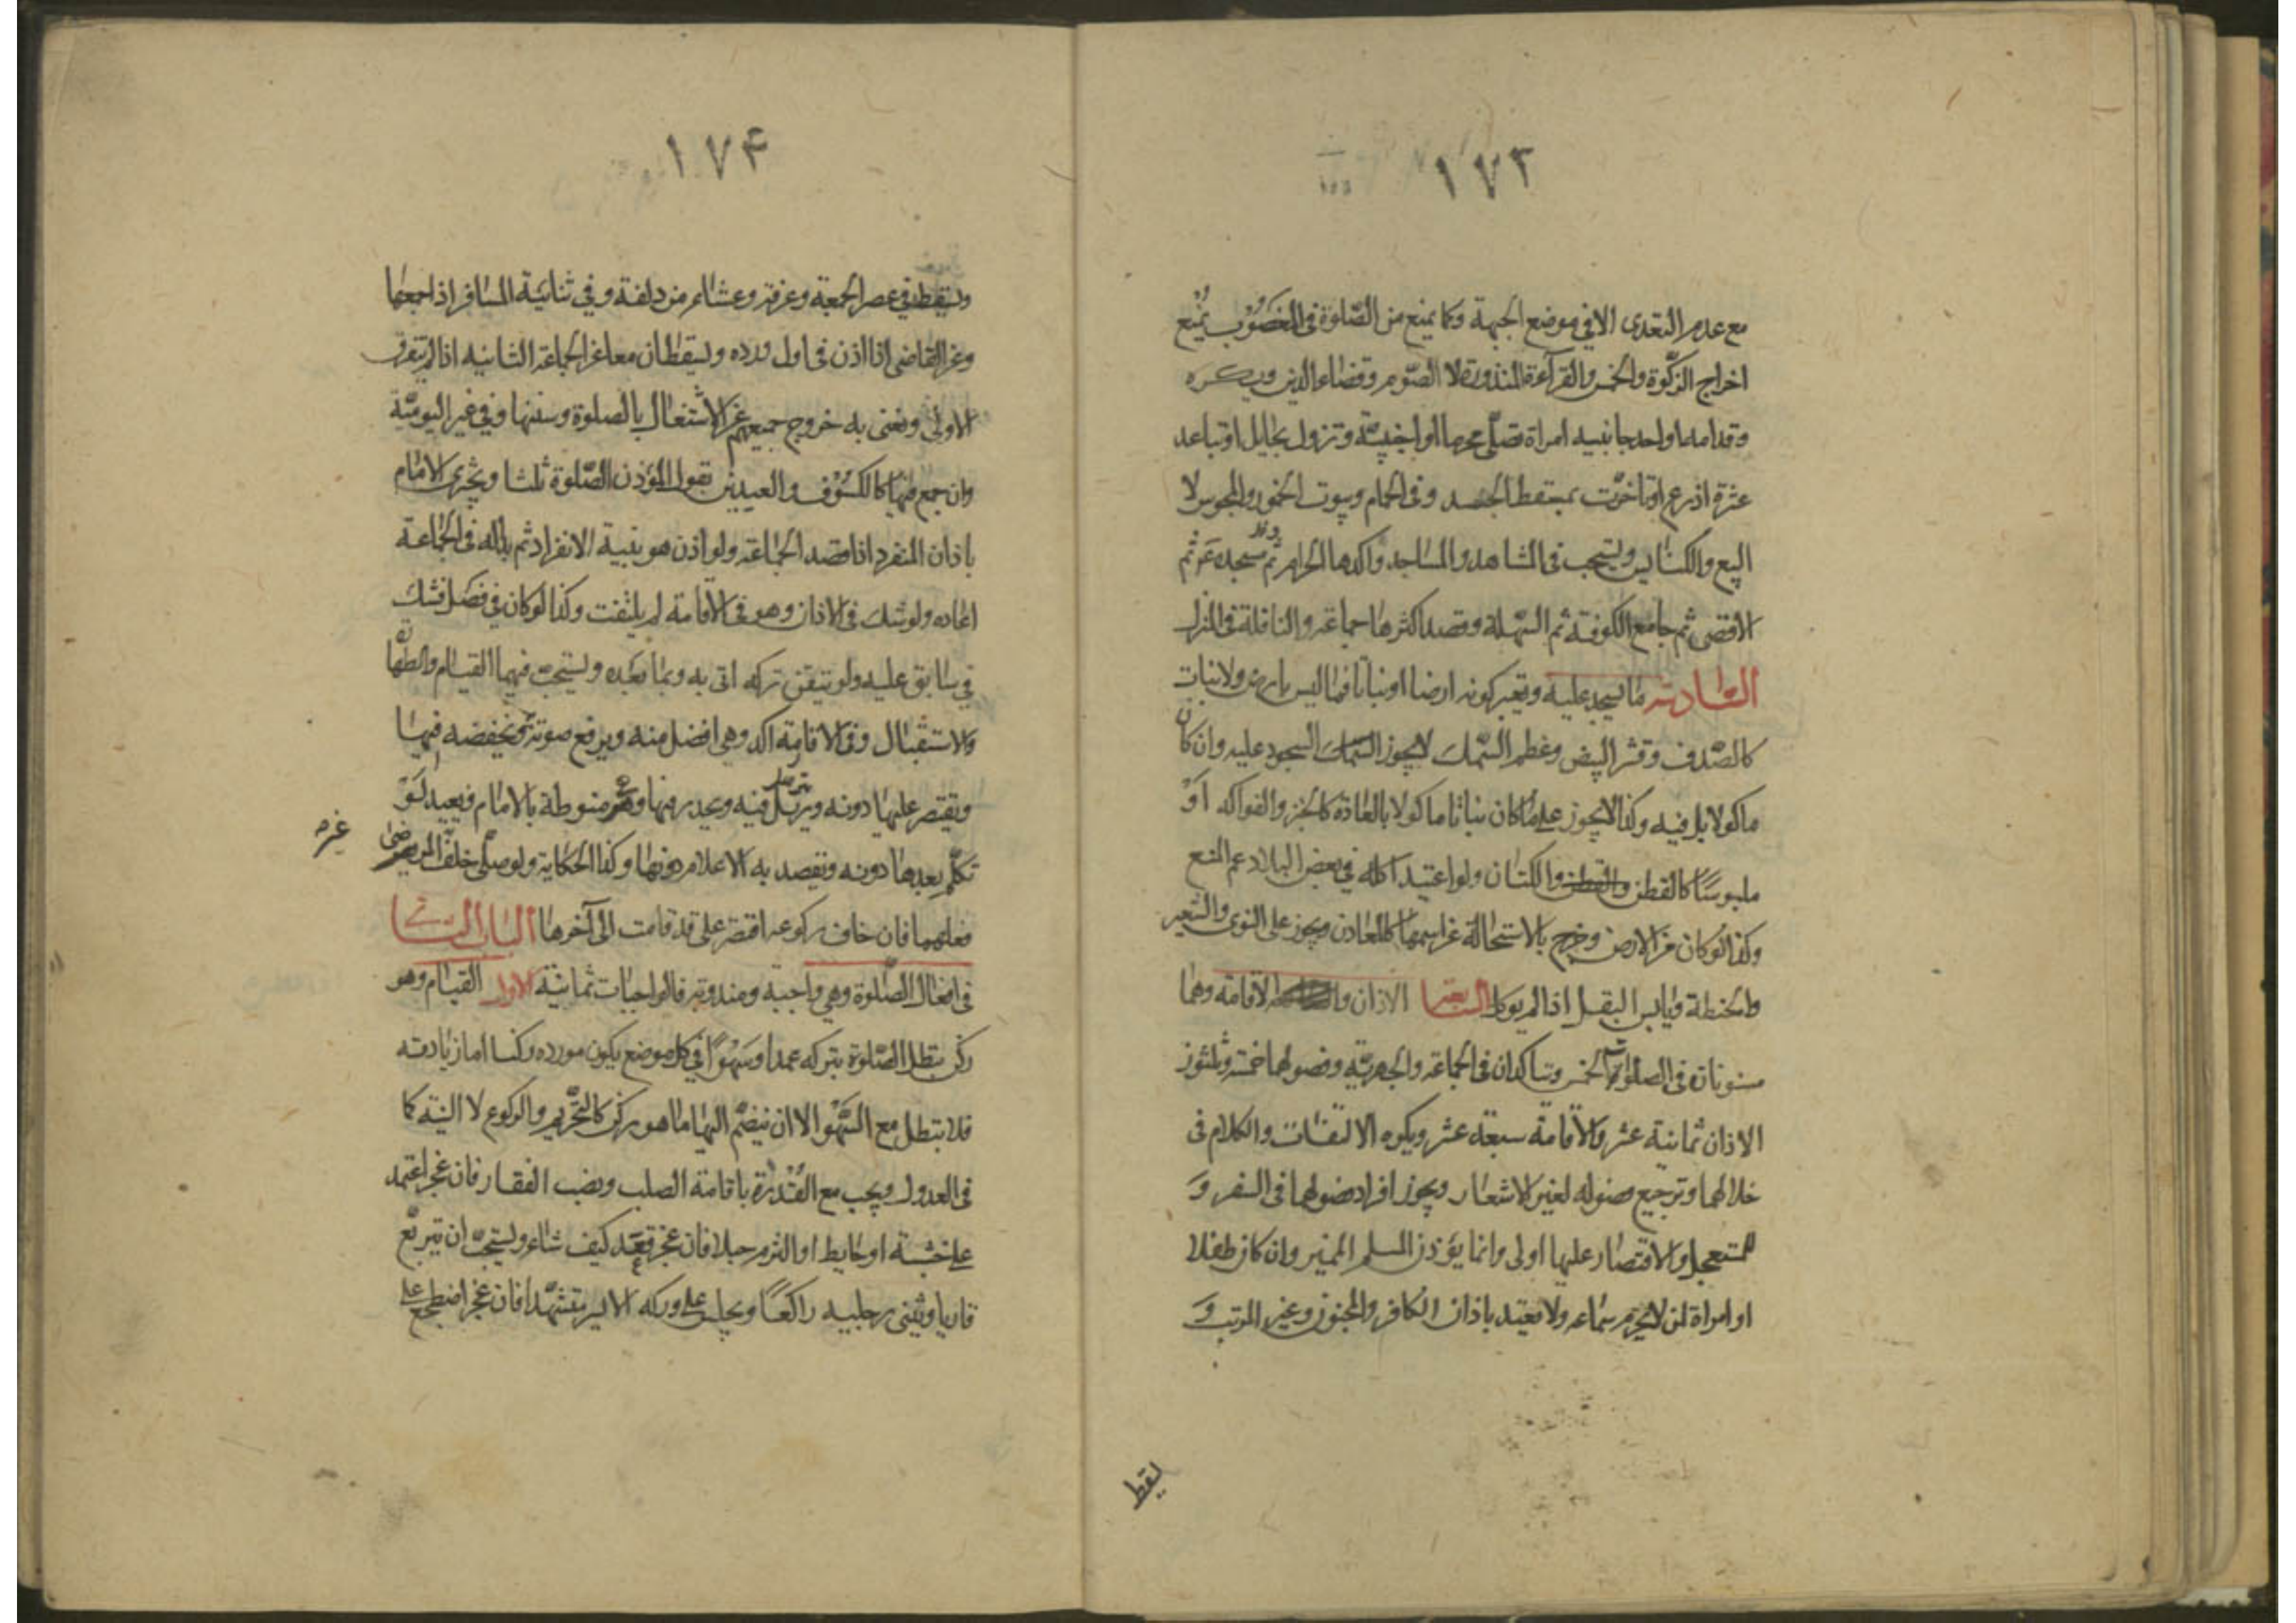 ١٧٣
مع عدم التعدى الا فى موضع الجبهة وكما يمنع من الصّلوة فى المغصوب يمنع
اخراج الزكوة والخمس والقراءة المنذورة لا الصّوم وقضاء الدين ويكره
وقدامه او احد جانبيه امراة تصلّى محرما او اجنبيّة وتزول بحايل او تباعد
عشرة اذرع او تاخرت بمسقط الجسد وفى الحمام وبيوت الخمور والمجوس لا
البيع والكنايس ويستحب فى المشاهد والمساجد واكدها الحرام ثم مسجده ثم
الاقصى ثم جامع الكوفة ثم السّهلة وقصد اكثرها جماعة والنافلة فى المنزل
السّادسة ما يسجد عليه ويعتبر كونه ارضا او نباتا فما ليس بارض ولا نبات
كالصّدف وقشر البيض وعظم السّمك لا يجوز السجود عليه وان كان
ماكولا بل فيه وكذا لا يجوز على ما كان نباتا ماكولا بالعادة كالخبز والفواكه او
ملبوسًا كالقطن والكتان ولو اعتيد اكله فى بعض البلاد عم المنع
وكذا لو كان من الارض وخرج بالاستحالة عن اسمها كالمعادن ويجوز على النوى والشعير
والحنطة ويابس البقل اذا لم يوكل السّابعة الاذان والاقامة وهما
مسنونان فى الصلوات الخمس ويتاكدان فى الجماعة والجهريّة وفصولهما خمسة وثلثون
الاذان ثمانية عشر والاقامة سبعة عشر ويكره الالتفات والكلام فى
خلالهما وترجيع فصوله لغير الاشعار ويجوز افراد فصولهما فى السفر و
للمستعجل والاقتصار عليها اولى وانما يؤذن المسلم المميز وان كان طفلا
او امراة لمن لا يحرم سماعه ولا يعتد باذان الكافر والمجنون وغير المرتب و
يسقط
١٧۴
ويسقط فى عصر الجمعة وعرفة وعشاء مزدلفة وفى ثنائية المسافر اذا جمعها
وعن القاضى اذا اذن فى اول ورده ويسقطان معا عن الجماعة الثانية اذا لم يتفرق
الاولى ونعنى به خروج جميعهم عن الاشتغال بالصلوة وسننها وفى غير اليوميّة
وان جمع فيها كالكسوف والعيدين يقول المؤذن الصّلوة ثلثا ويجزى الامام
باذان المنفرد اذا قصد الجماعة ولو اذن هو بنية الانفراد ثم بدا له فى الجماعة
اعاده ولو شك فى الاذان وهو فى الاقامة لم يلتفت وكذا لو كان فى فصل فشك
فى سابق عليه ولو تيقن تركه اتى به وبما بعده ويستحبّ فيهما القيام والطّهارة
والاستقبال وفى الاقامة اكد وهى افضل منه ويرفع صوته ويخفضه فيها
ويقتصر عليها دونه ويرتل فيه ويحدر فيها وهى منوطة بالامام فيعيد لو
تكلّم بعدها دونه ويقصد به الاعلام دونها وكذا الحكاية ولو صلّى خلف غير المرضى
فعلهما فان خاف ركوعه اقتصر على قد قامت الى آخرها الباب الثانى
فى افعال الصّلوة وهى واجبة ومندوبة فالواجبات ثمانية الاول القيام وهو
ركن تبطل الصّلوة بتركه عمدا وسهوًا فى كل موضع يكون مورده ركنا اما زيادته
فلا تبطل مع السّهو الا ان ينضّم اليها ما هو ركن كالتحريم والركوع لا النيّة كما
فى العدول ويجب مع القدرة باقامة الصلب ونصب الفقار فان عجز اعتمد
على خشبة او حايط او التزم حبلا فان عجز قعد كيف شاء ويستحبّ ان يتربّع
قاريا ويثنى رجليه راكعًا ويجلس على وركه الايسر متشهّدا فان عجز اضطجع على